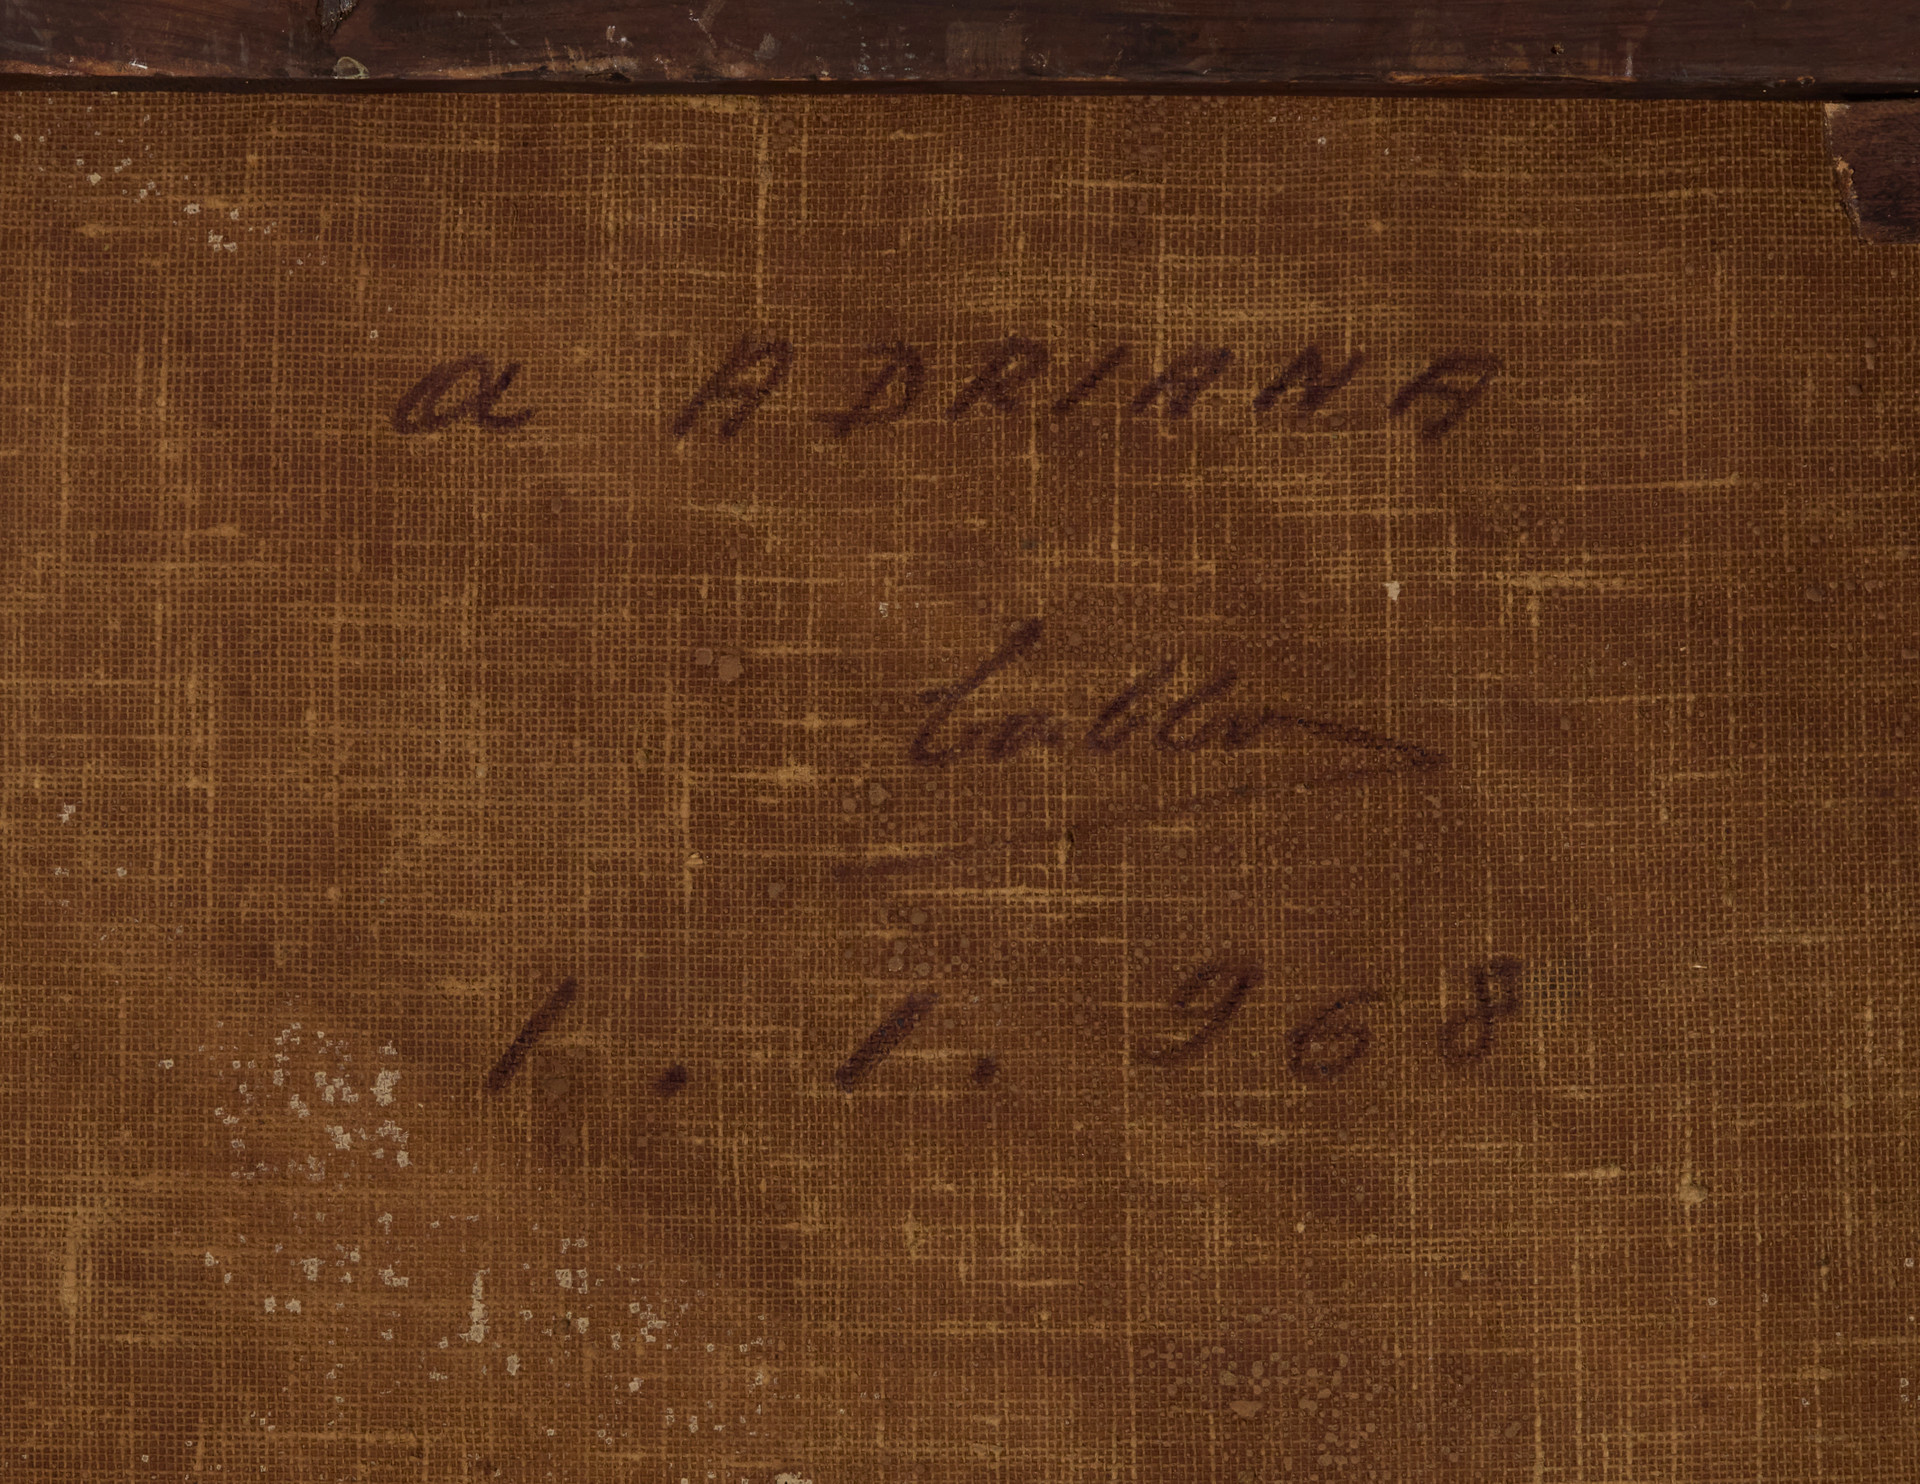 a ADRIANA
1.1.968